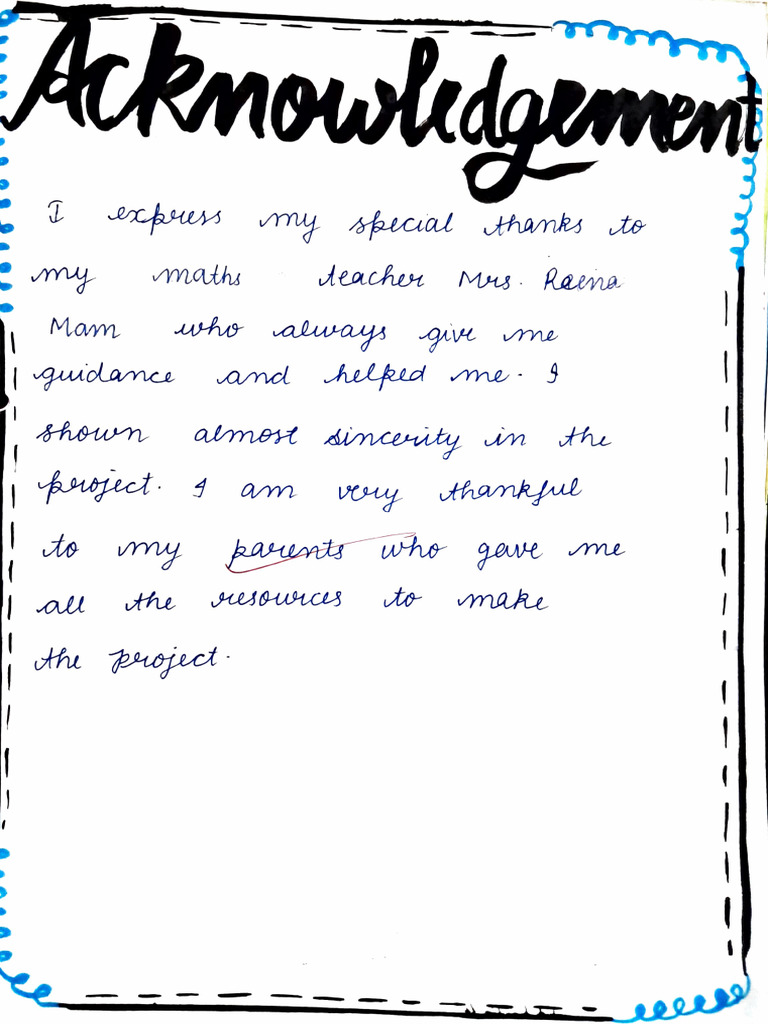 Acknowledgement
I express my special thanks to
my maths teacher Mrs. Raina
Mam who always give me
guidance and helped me. I
shown almost sincerity in the
project. I am very thankful
to my parents who gave me
all the resources to make
the project.